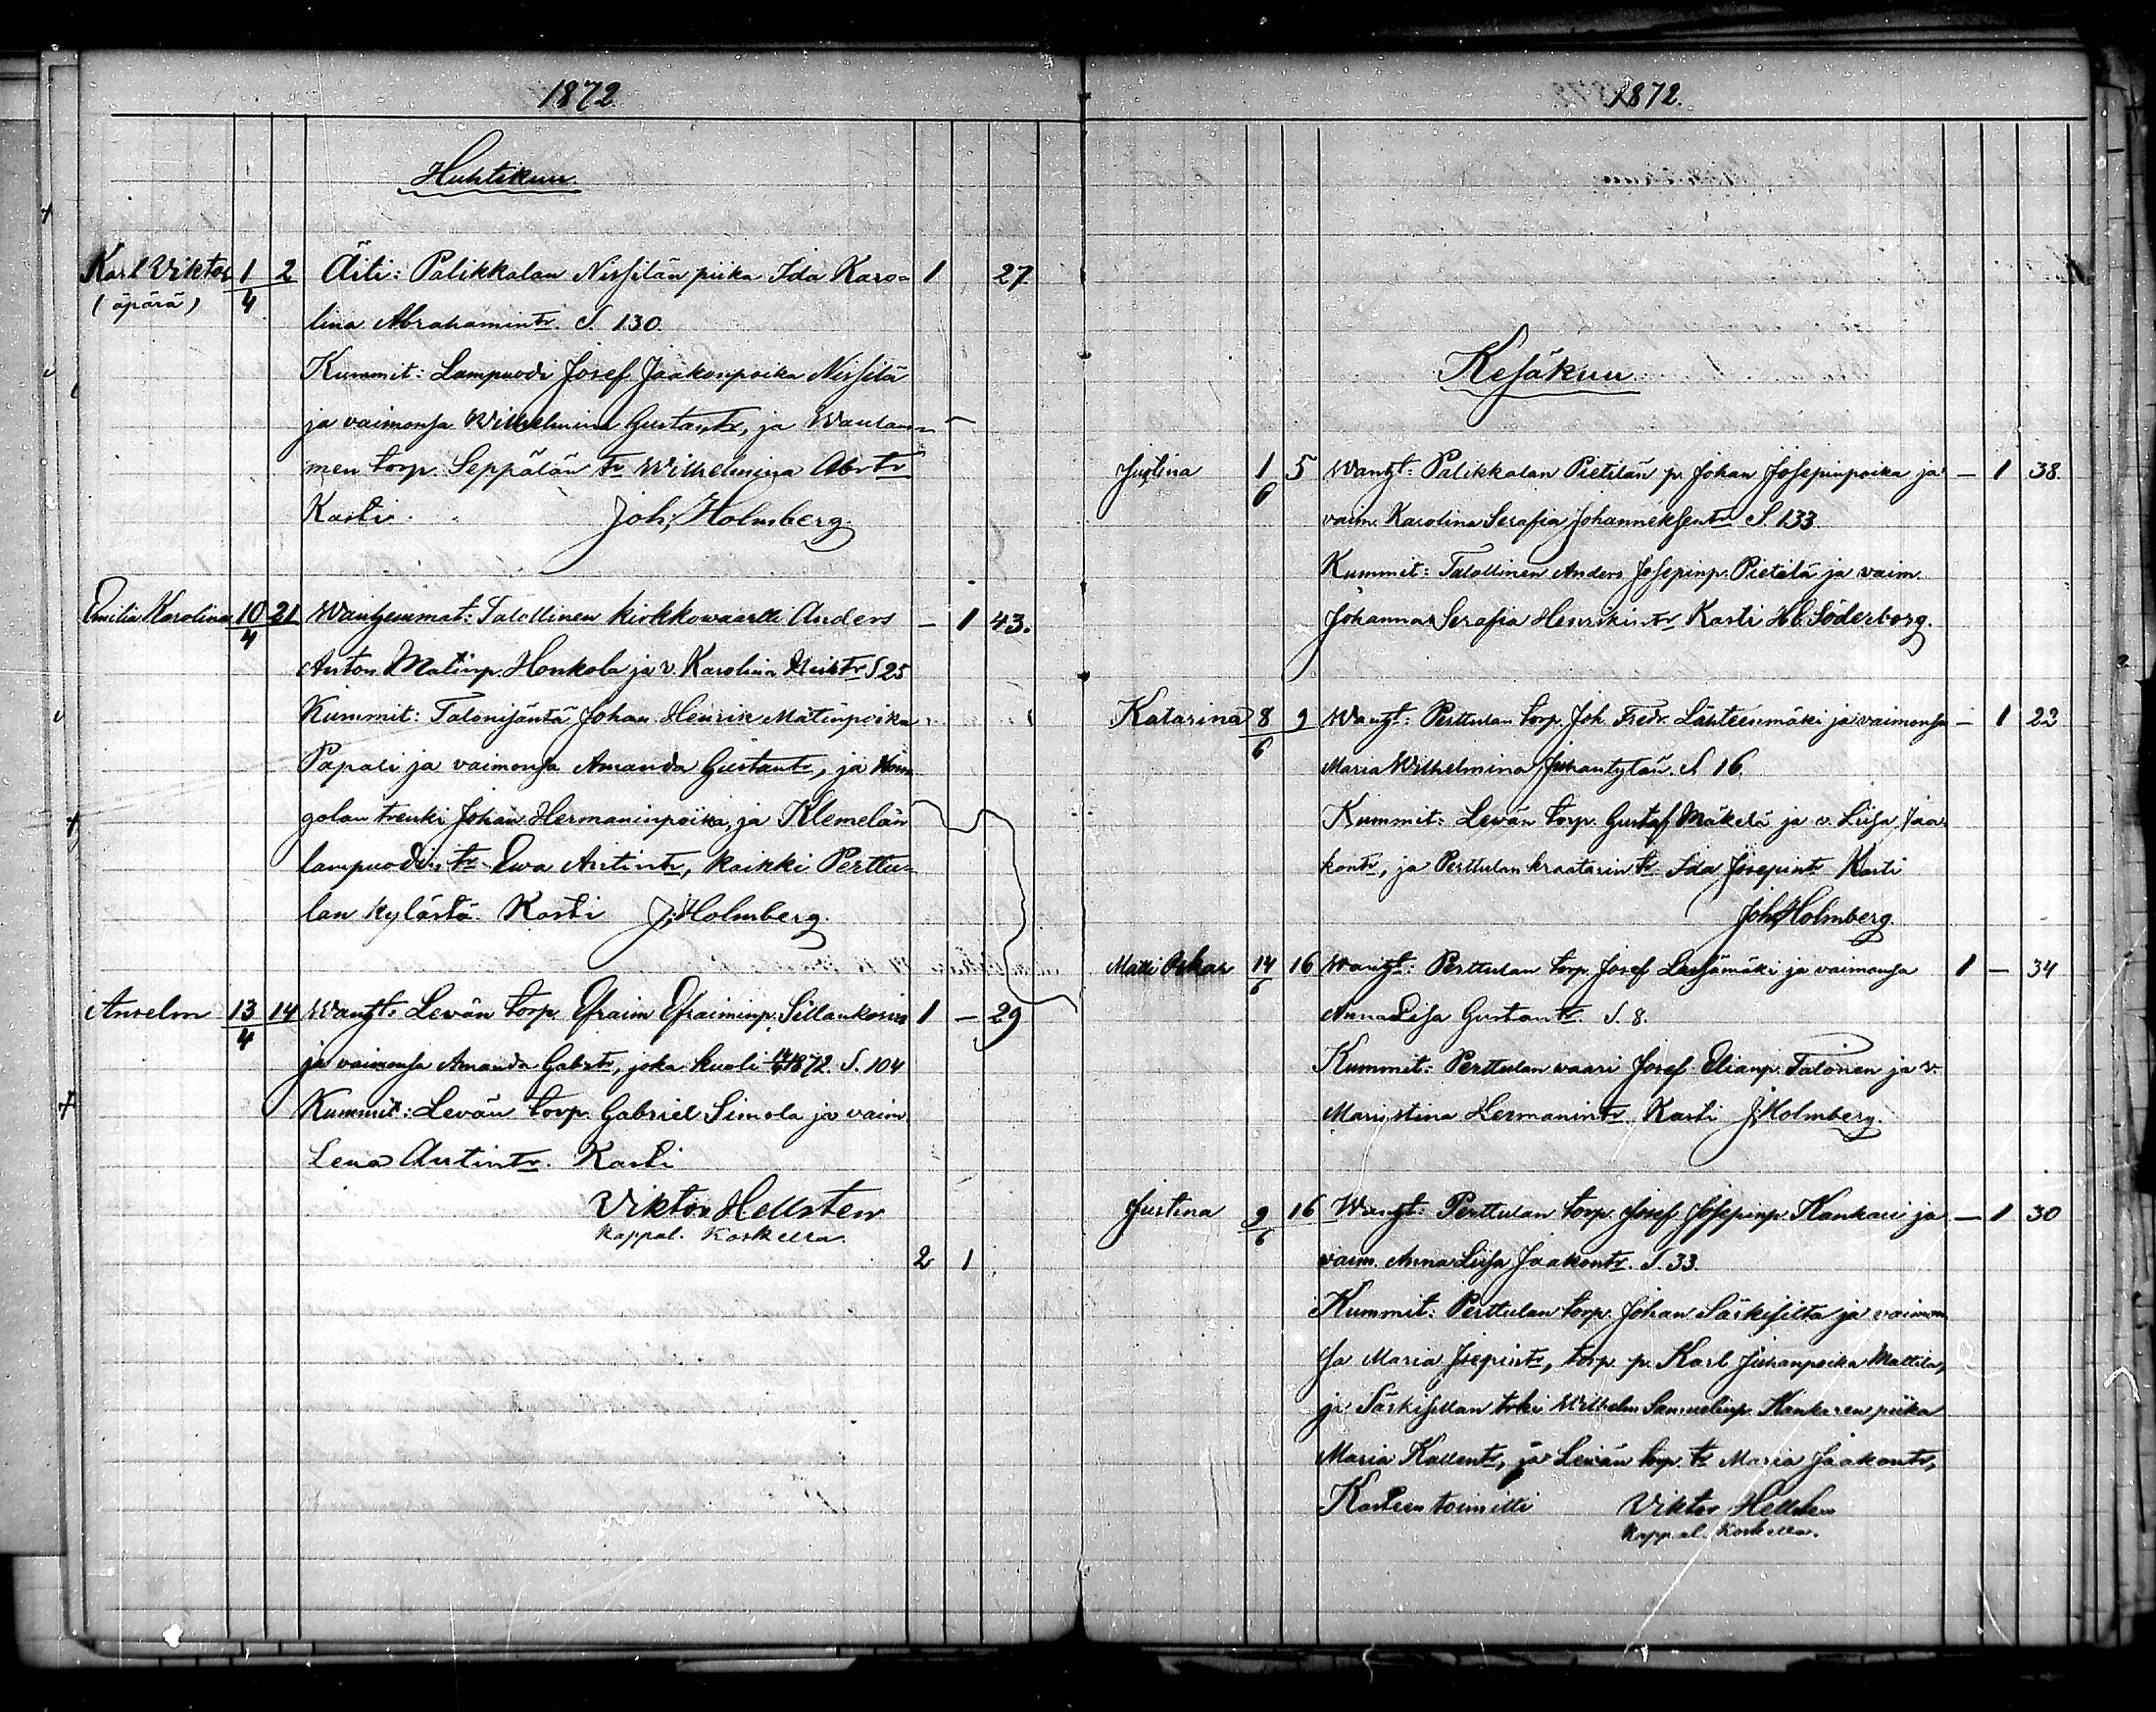 1872.
Huhtikuu
Karl Viktor 1/4 2 Äiti: Palikkalan Nissilän piika Ida Karo= 1 27.
(äpärä) lina Abrahamintr. S. 130.
Kummit: Lampuodi Josef Jaakonpoika Nissilä
ja vaimonsa Wilhelmina Gustantr, ja
men torp. Seppälän tr Wilhelmina Abrtr
Kasti Joh. Holmberg.
Emilia Karolina 10/4 21 Wanhemmat: Talollinen kirkkowaartti Anders — 1 43.
Anton Matinp. Honkola ja v. Karolina S 25
Kummit: Talonisäntä Johan Henrik Matinpoika
Papari ja vaimonsa Amanda Gustantr, ja
golan trenki Johan Hermaninpoika, ja Klemelän
lampuodin tr Ewa Antintr, kaikki Perttu=
lan kylästä. Kasti J. Holmberg.
Anselm 13/4 14 Wanht: Levän torp. Efraim Efraiminp. Sillankorva 1 — 29
ja vaimonsa Amanda Gabrtr, joka kuoli 1872. S. 104
Kummit: Levän torp. Gabriel Simola ja vaim.
Lena Antintr. Kasti
Viktor Hellsten
Kappal. Koskella.
2 1
1872.
Kesäkuu
Justina 1/6 5 Wanht: Palikkalan Pietilän p. Johan Josepinpoika ja — 1 38.
vaim. Karolina Serafia Johanneksentr S. 133.
Kummit: Talollinen Anders Josepinp. Pietilä ja vaim.
Johanna Serafia Henrikintr Kasti Hl. Söderborg.
Katarina 8/6 9 Wanht: Perttulan torp. Joh. Fredr. Lähteenmäki ja vaimonsa — 1 23
Maria Wilhelmina Juhantytär. S. 16.
Kummit: Levän torp. Gustaf Mäkelä ja v. Liisa Jaa
kontr, ja Perttulan kraatarin tr. Ida Josepintr Kasti
Joh. Holmberg.
Matti Oskar 14/6 16 Wanht: Perttulan torp. Josef ja vaimonsa 1 — 34
Anna Lisa Gustantr. S. 8.
Kummit: Perttulan waari Josef Elianp. Talonen ja v.
Maria Stina Hermanintr. Kasti J. Holmberg.
Justina 9/6 16 Wanht: Perttulan torp. Josef Josepinp. Kankari ja — 1 30
vaim. Anna Liisa Jaakontr. S. 33.
Kummit: Perttulan torp. Johan Särkisilta ja vaimon
sa Maria Josepintr, torp. p. Karl Juhanpoika Mattila,
ja Särkisillan trki Wilhelm Samuelinp. Kankaren piika
Maria Kallentr, ja Levän torp. tr Maria Jaakontr,
Kasteen toimitti Viktor Hellsten
Kappal. Koskella.